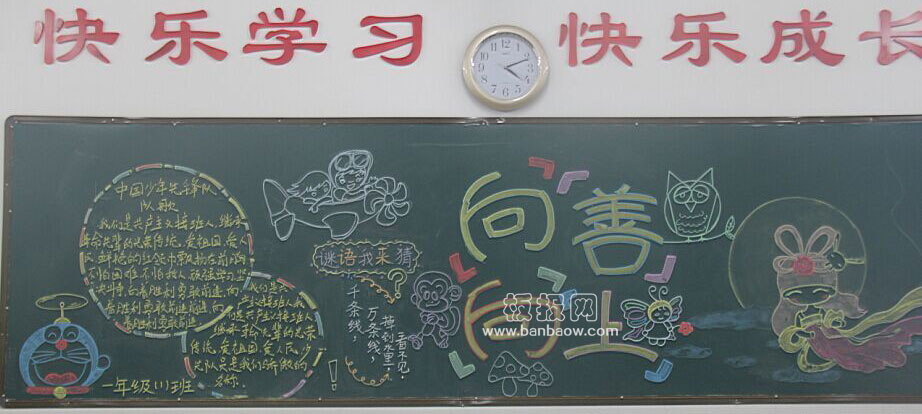 快乐学习 快乐成长
中国少年先锋队
队歌
我们是共产主义接班人，继承
革命先辈的光荣传统，爱祖国，爱人
民，鲜艳的红领巾飘扬在前胸
不怕困难，不怕敌人，顽强学习，坚
决斗争，向着胜利勇敢前进，向
着胜利勇敢前进，前进，向
着胜利勇敢前进，
我们是共产主义接班人
我们是共产主义接班人
继承革命先辈的光荣
传统，爱祖国，爱人民，少
先队员是我们骄傲的
名称。
一年级(1)班
谜语我来猜
?
千条线，
万条线，
掉到水里，
看不见，
!
向善
向上
板报网
www.banbaow.com